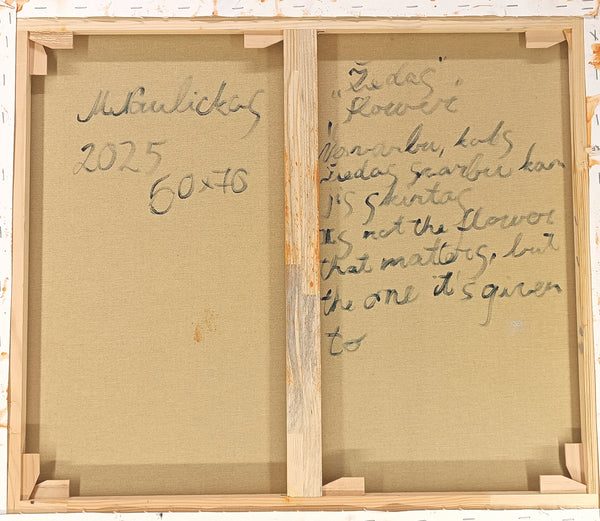 M Paulickas
2025
60x70
„Žiedas"
Flower"
Nesvarbu, koks
žiedas svarbu kam
jis skirtas
Its not the flower
that matters, but
the one it's given
to